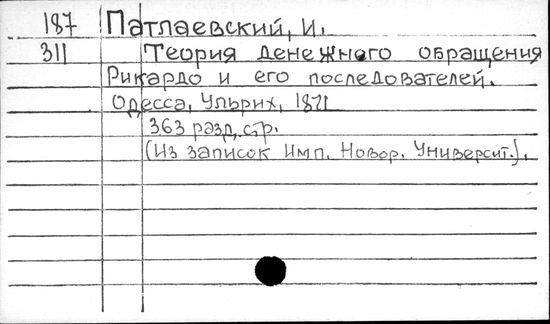 187 Патлаевский, И.
311 Теория денежного обращения
Рикардо и его последователей.
Одесса, Ульрих, 1871
363 разд. стр.
(Из записок Имп. Новор. Университ.).